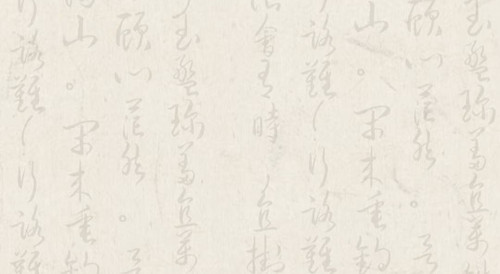 玉盤珍羞直萬
顧心茫然。
山。閒來垂釣
路難！行路難
會有時，直掛
玉盤珍羞直萬
顧心茫然。
山。閒來垂釣
路難！行路難